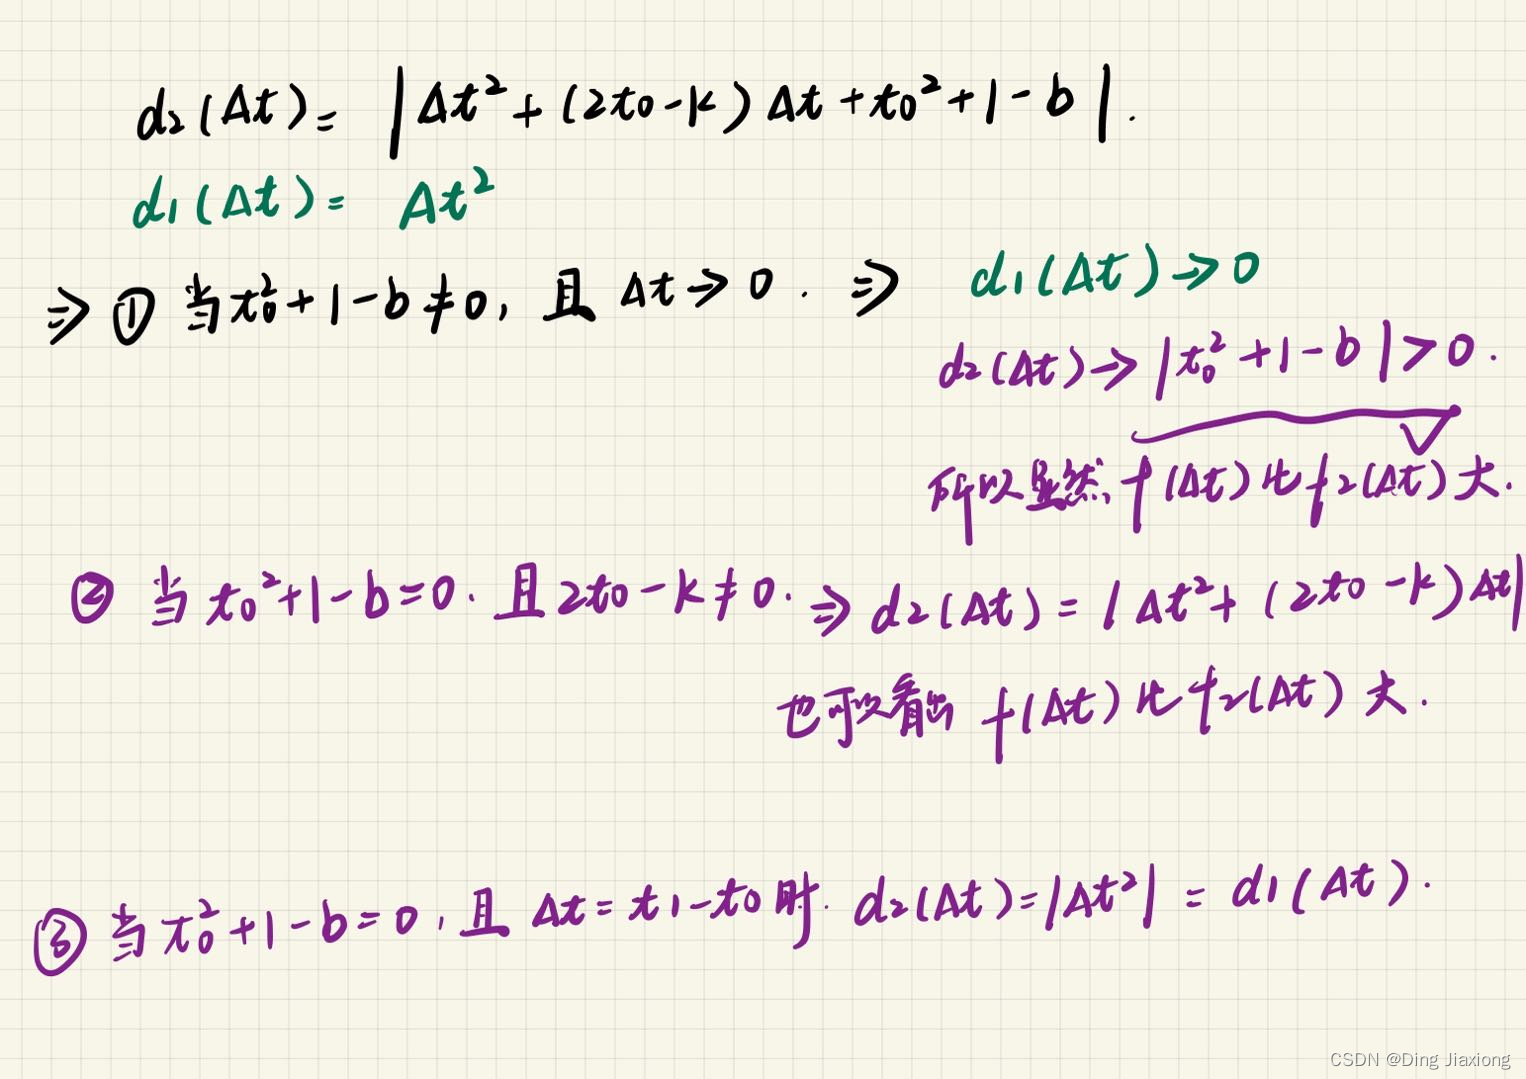 d₂(Δt)= |Δt²+(2t₀-k)Δt+t₀²+1-b|.
d₁(Δt)= Δt²
⇒ ① 当t₀²+1-b≠0, 且 Δt→0. ⇒ d₁(Δt)→0
d₂(Δt)→|t₀²+1-b|>0.
所以显然 f(Δt)比f₂(Δt)大.
② 当t₀²+1-b=0. 且2t₀-k≠0. ⇒ d₂(Δt)=|Δt²+(2t₀-k)Δt|
也可以看出 f(Δt)比f₂(Δt)大.
③ 当t₀²+1-b=0, 且 Δt=t₁-t₀时. d₂(Δt)=|Δt²|=d₁(Δt).
CSDN @Ding Jiaxiong